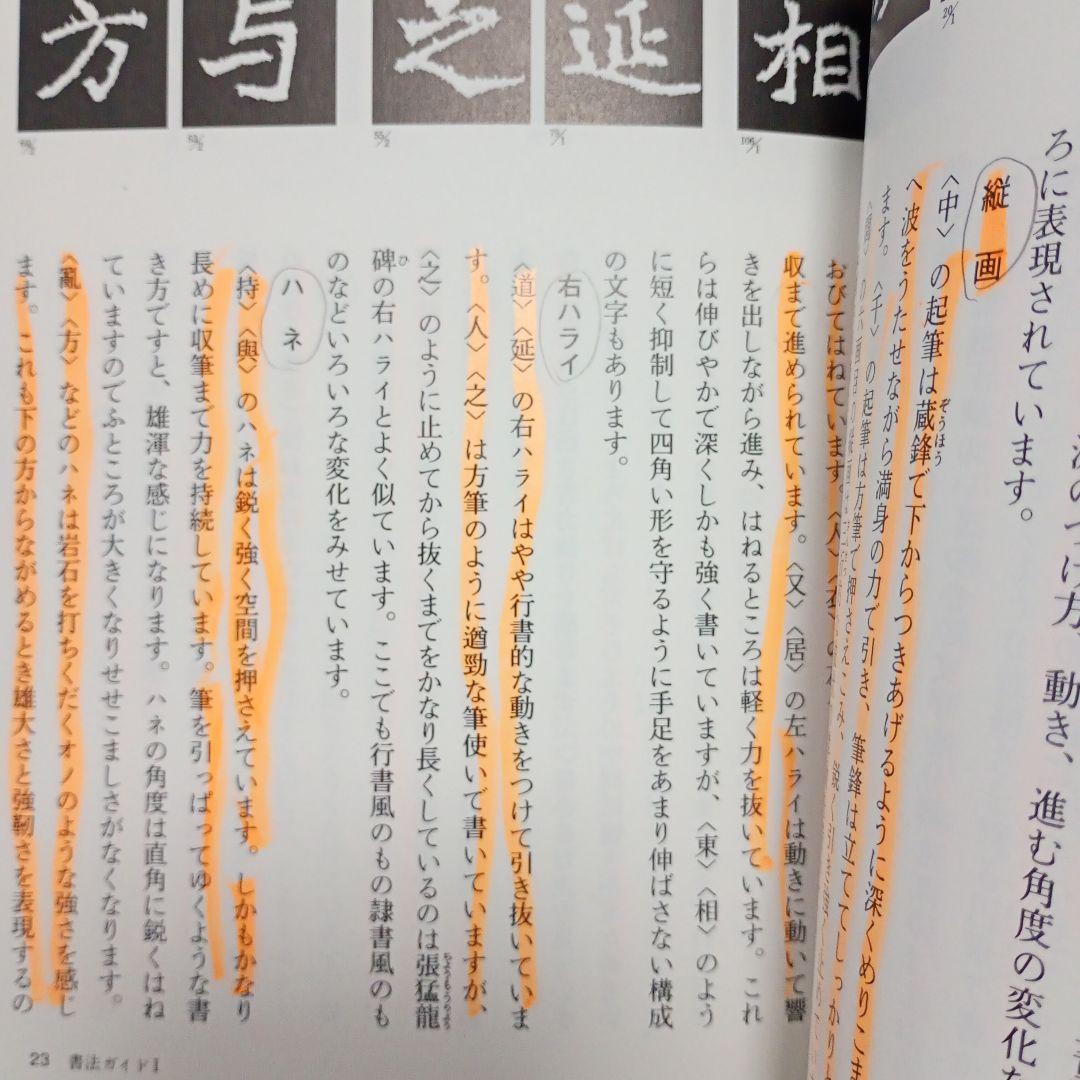 ろに表現されています。
動き、進む角度の変化
縦画
〈中〉の起筆は蔵鋒で下からつきあげるように深くめりこま
ぞうほう
へ波をうたせながら満身の力で引き、
ます。〈千〉の起筆は方筆で押さえこみ、筆鋒は立ててしっかり
相
延
之
与
方
106/1
79/1
55/2
53/2
59/2
おびてはねています
収まで進められています。〈又〉〈居〉の左ハライは動きに動いて響
きを出しながら進み、はねるところは軽く力を抜いています。これ
らは伸びやかで深くしかも強く書いていますが、〈東〉〈相〉のよう
に短く抑制して四角い形を守るように手足をあまり伸ばさない構成
の文字もあります。
右ハライ
〈道〉〈延〉の右ハライはやや行書的な動きをつけて引き抜いていま
す。〈人〉〈之〉は方筆のように遒勁な筆使いで書いていますが、
〈之〉のように止めてから抜くまでをかなり長くしているのは張猛龍
碑の右ハライとよく似ています。ここでも行書風のもの隷書風のも
ひ
のなどいろいろな変化をみせています。
ハネ
〈持〉〈與〉のハネは鋭く強く空間を押さえています。しかもかなり
長めに収筆まで力を持続しています。筆を引っぱってゆくような書
き方ですと、雄渾な感じになります。ハネの角度は直角に鋭くはね
ていますのでふところが大きくなりせせこましさがなくなります。
〈亂〉〈方〉などのハネは岩石を打ちくだくオノのような強さを感じ
ます。これも下の方からながめるとき雄大さと強靭さを表現するの
23 書法ガイドI